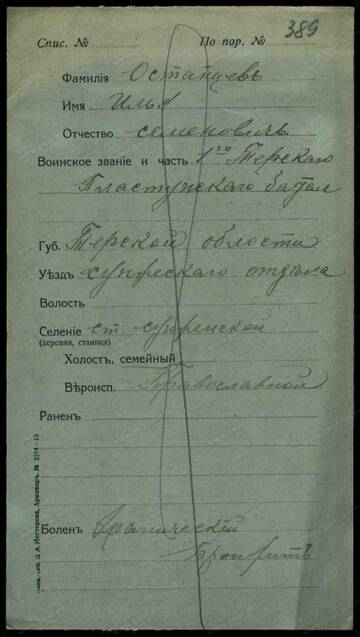 389
Спис. № По пор. №
Фамилія Остапцевъ
Имя Илья
Отчество семеновичъ
Воинское званіе и часть 1го Терскаго
Пластунскаго батал
Губ. Терской области
Уѣздъ сунженскаго отдѣла
Волость
Селеніе ст сунженской
(деревня, станица)
Холостъ, семейный
Вѣроисп. Православной
Раненъ
Боленъ хроническій
бронхитъ